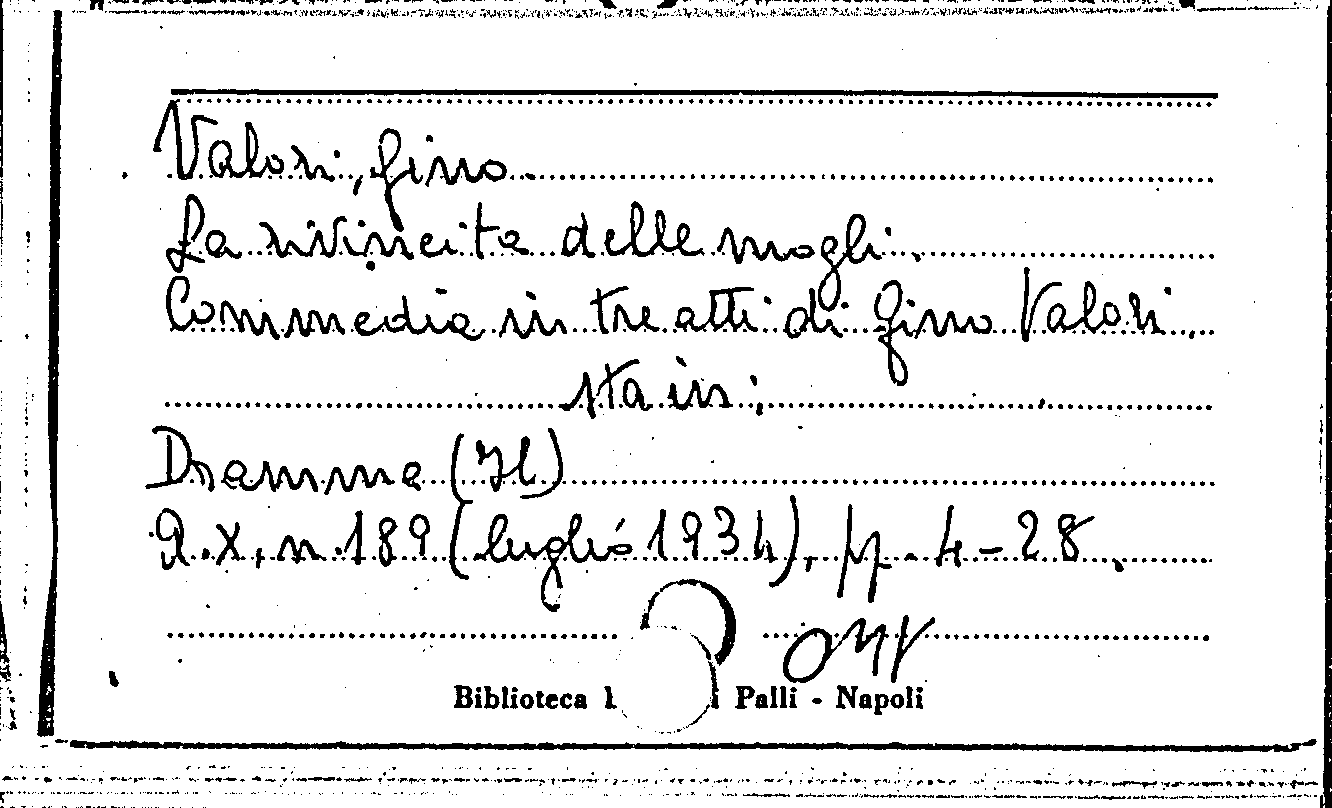 Valori, Gino.
La rivincita delle mogli.
Commedia in tre atti di Gino Valori.
sta in:
Dramma (Il)
a. X, n. 189 (luglio 1934), pp. 4-28.
Biblioteca Palli - Napoli